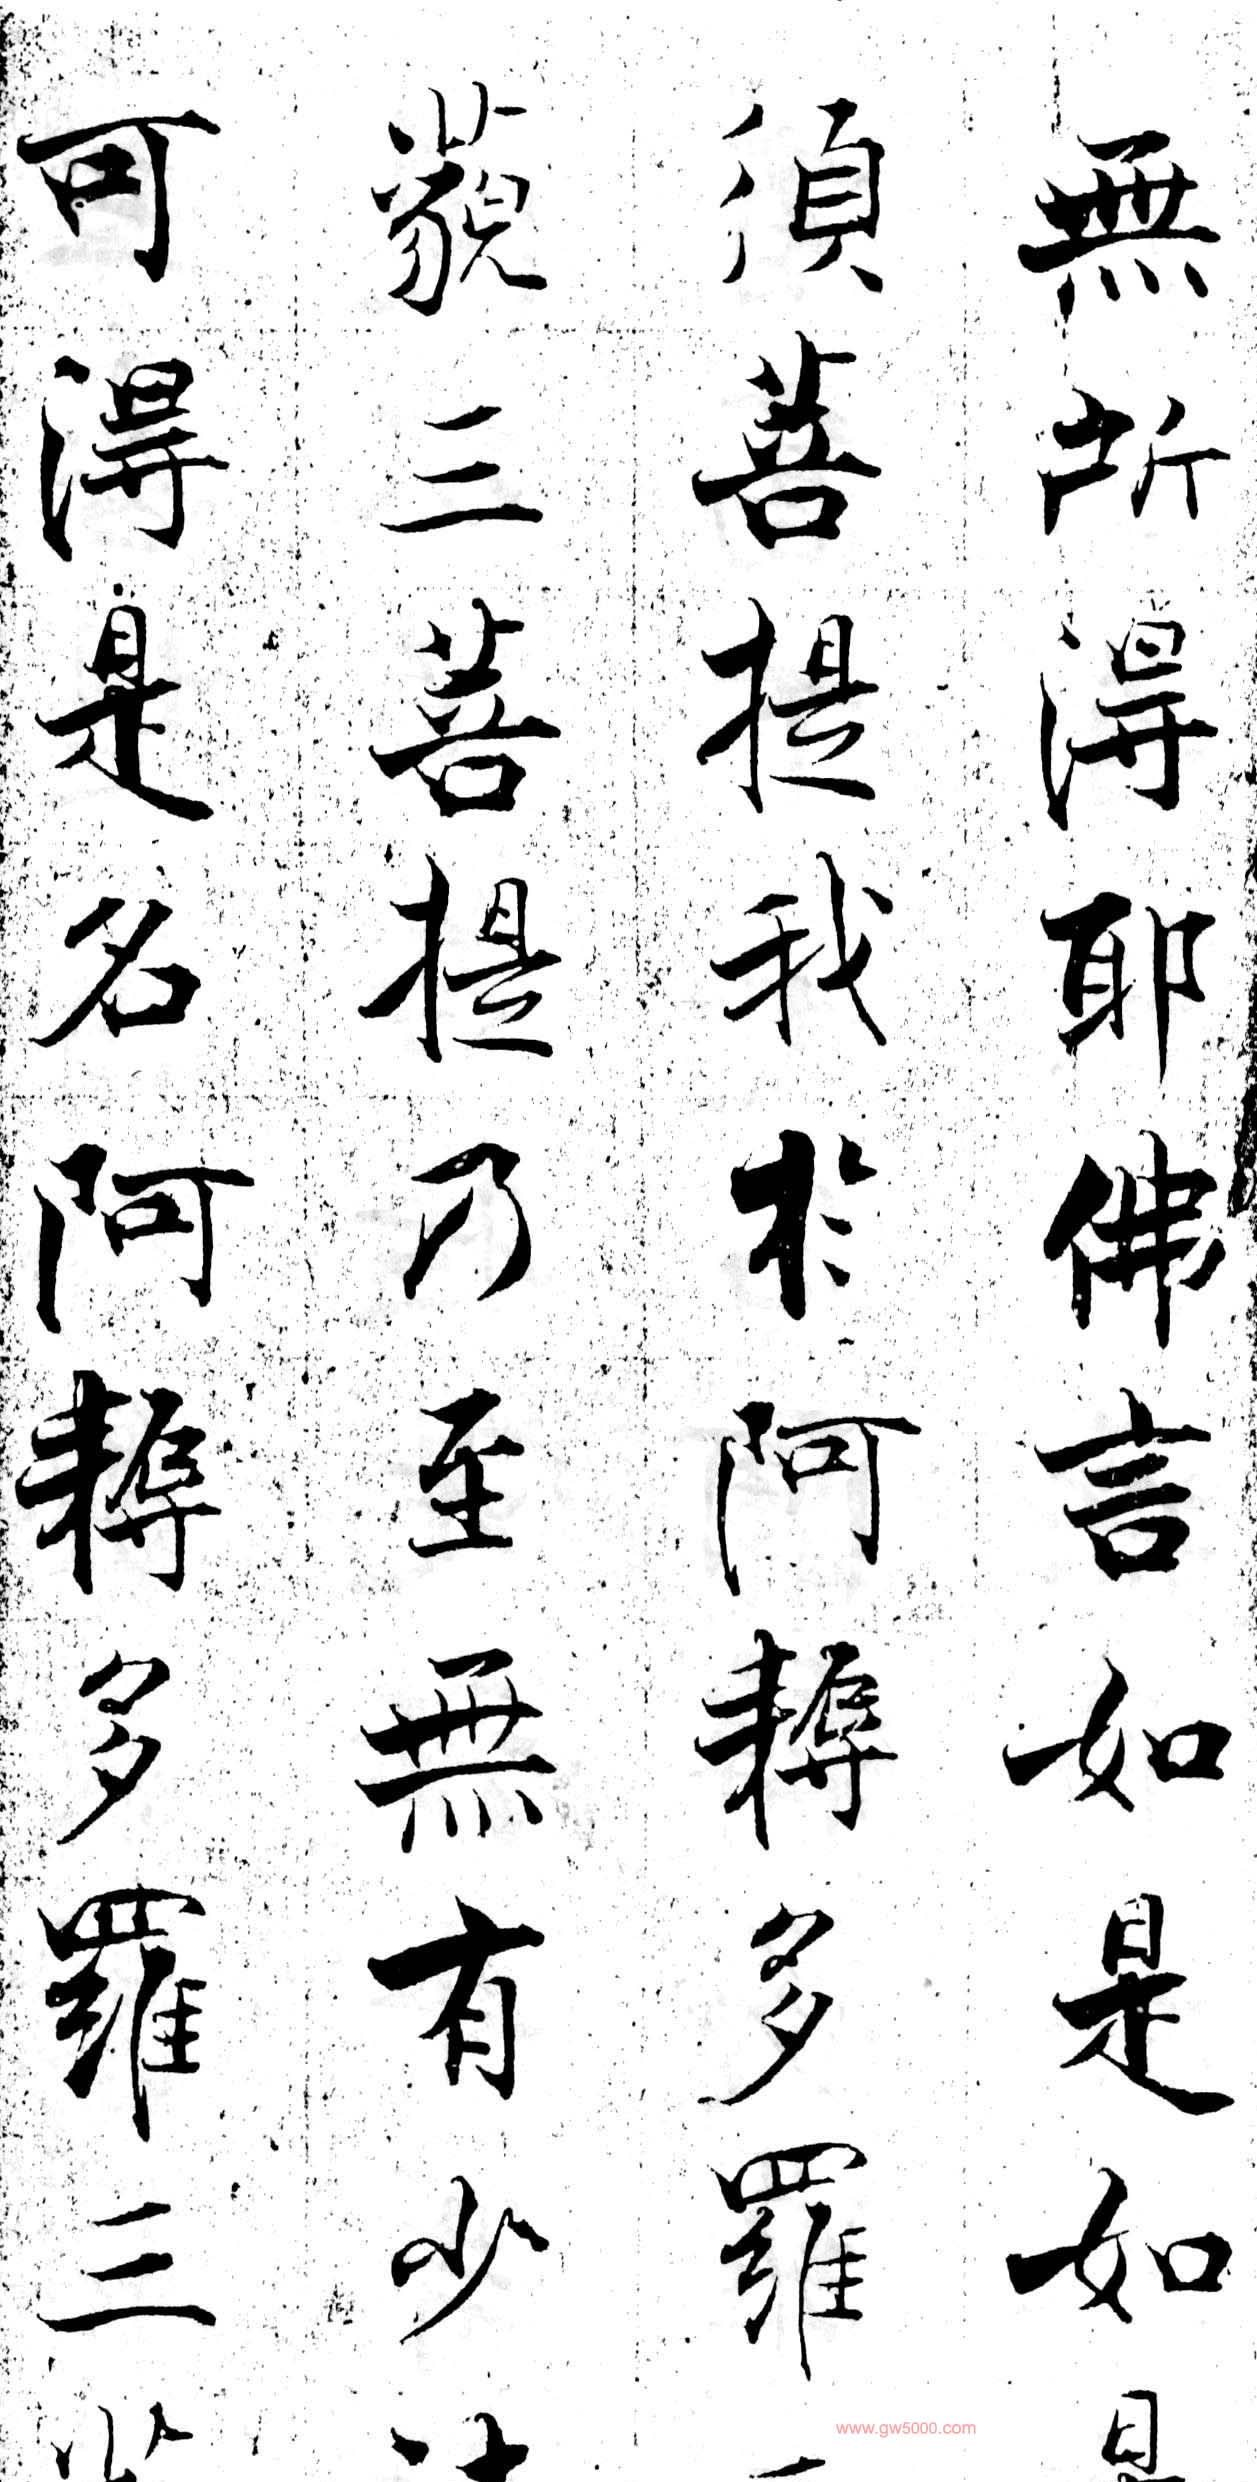 無所得耶佛言如是如是
須菩提我於阿耨多羅
藐三菩提乃至無有少法
可得是名阿耨多羅三
www.gw5000.com